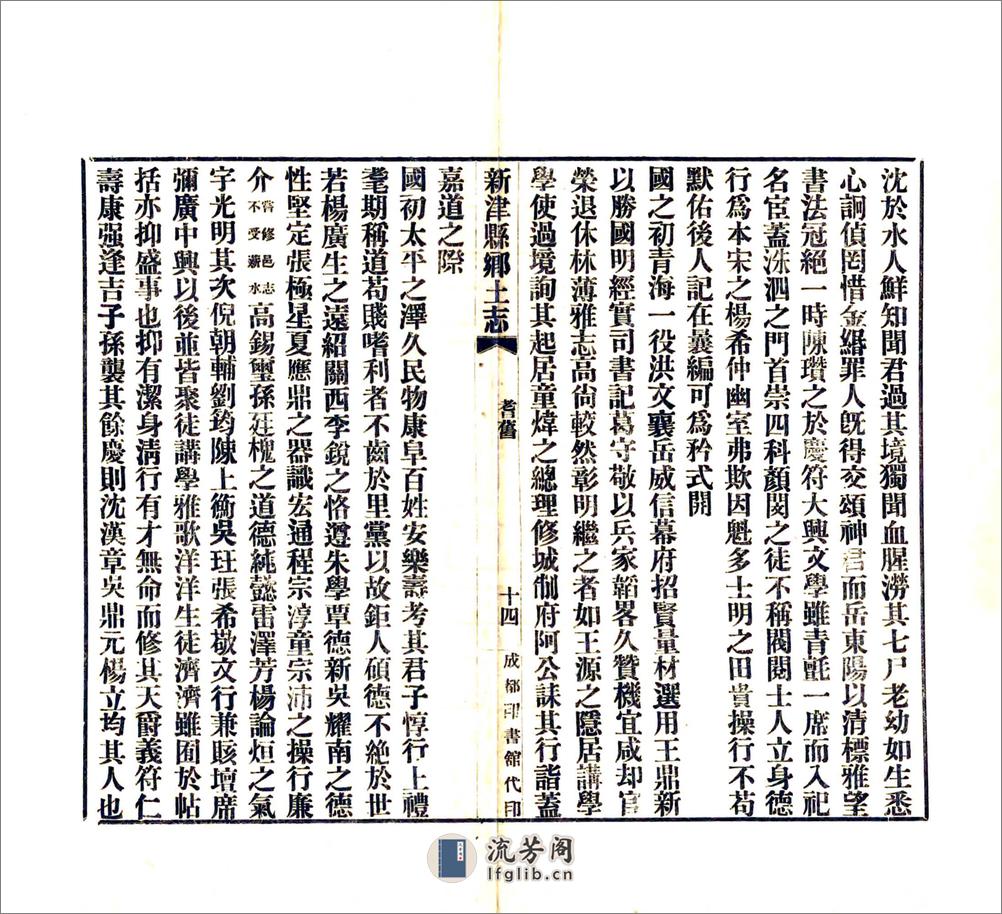 沈於水人鮮知聞君過其境獨聞血腥澇其七尸老幼如生悉
心詗偵罔惜金緡罪人旣得交頌神君而岳東陽以清標雅望
書法冠絕一時陳瓚之於慶符大興文學雖青氈一席而入祀
名宦蓋洙泗之門首崇四科顏閔之徒不稱閥閱士人立身德
行爲本宋之楊希仲幽室弗欺因魁多士明之田貴操行不苟
默佑後人記在曩編可爲矜式開
國之初青海一役洪文襄岳威信幕府招賢量材選用王鼎新
以勝國明經實司書記葛守敬以兵家韜畧久贊機宜咸却官
榮退休林薄雅志高尙較然彰明繼之者如王源之隱居講學
學使過境詢其起居童煒之總理修城制府阿公誄其行誼蓋
新津縣鄉土志 耆舊 十四 成都印書館代印
嘉道之際
國初太平之澤久民物康阜百姓安樂壽考其君子惇行上禮
耄期稱道苟賤嗜利者不齒於里黨以故鉅人碩德不絕於世
若楊廣生之遠紹關西李銳之恪遵朱學覃德新吳耀南之德
性堅定張極星夏應鼎之器識宏通程宗淳童宗沛之操行廉
介嘗修邑志不受薪水高錫璽孫廷槐之道德純懿雷澤芳楊論烜之氣
宇光明其次倪朝輔劉筠陳上衡吳玨張希敬文行兼賅壇席
彌廣中興以後並皆聚徒講學雅歌洋洋生徒濟濟雖囿於帖
括亦抑盛事也抑有潔身淸行有才無命而修其天爵義符仁
壽康强逢吉子孫襲其餘慶則沈漢章吳鼎元楊立均其人也
流芳阁
lfglib.cn